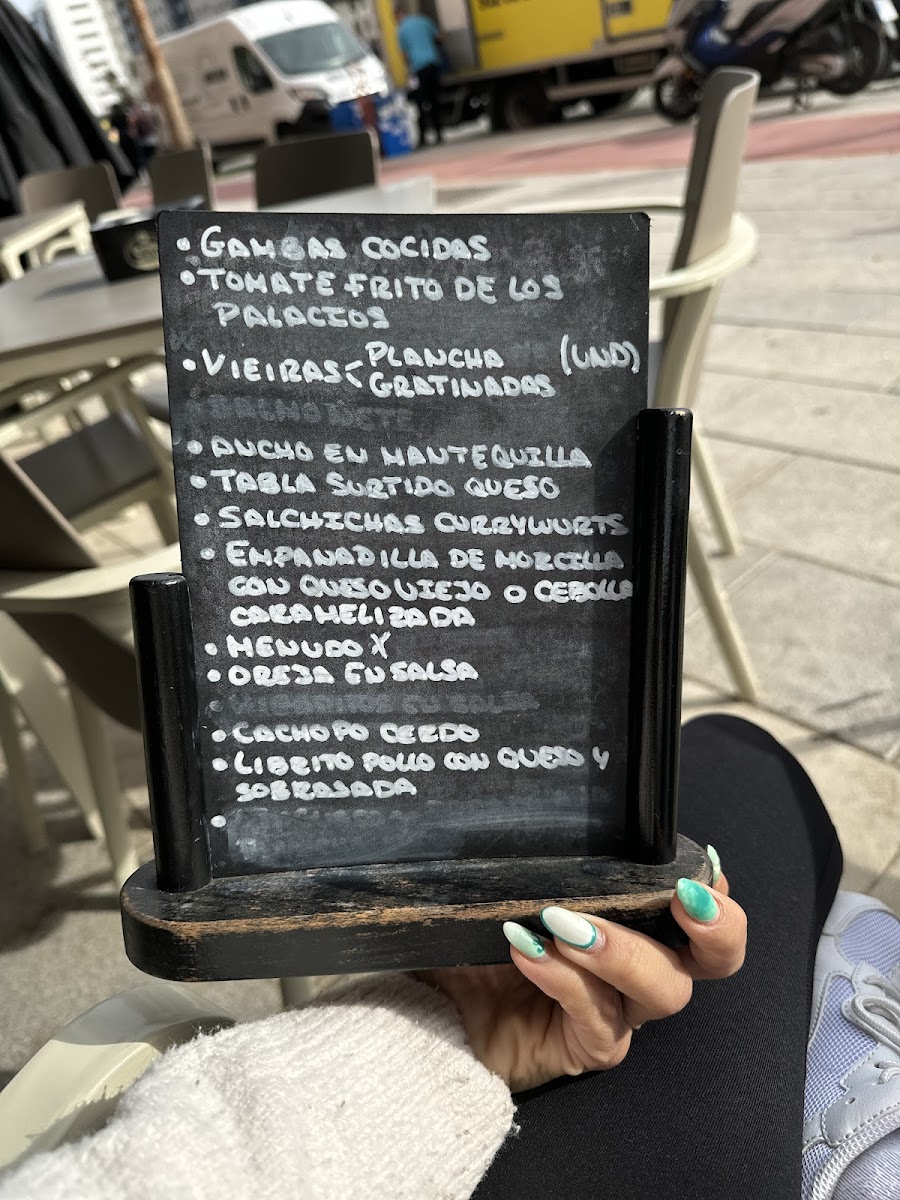 • GAMBAS COCIDAS
• TOMATE FRITO DE LOS
PALACIOS
• VIEIRAS < PLANCHA (UND)
GRATINADAS
• ANCHO EN MANTEQUILLA
• TABLA SURTIDO QUESO
• SALCHICHAS CURRYWURTS
• EMPANADILLA DE MORCILLA
CON QUESO VIEJO O CEBOLLA
CARAMELIZADA
• MENUDO X
• OREJA EN SALSA
• CACHOPO CERDO
• LIBRITO POLLO CON QUESO Y
SOBRASADA
•